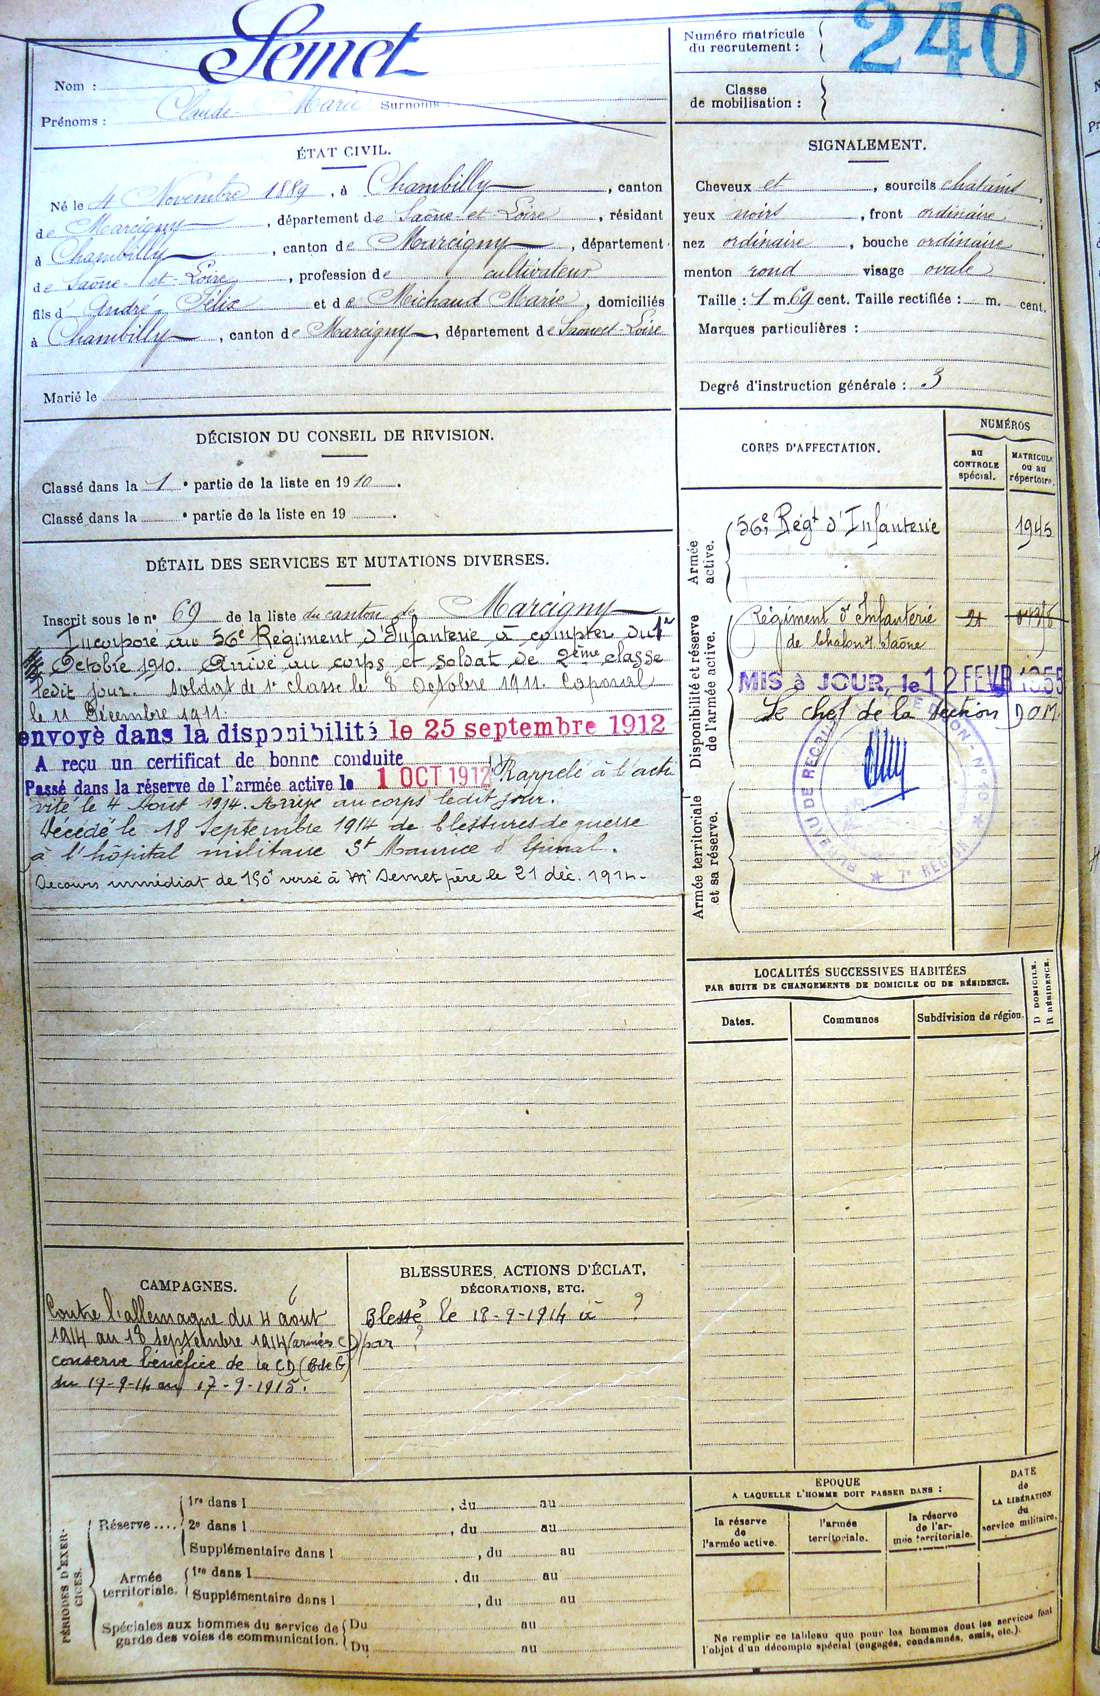 Semet
Nom :
Prénoms : Claude Marie Surnoms :
Numéro matricule
du recrutement :
240
Classe
de mobilisation :
ÉTAT CIVIL.
Né le 4 Novembre 1889, à Chambilly, canton
de Marcigny, département de Saône-et-Loire, résidant
à Chambilly, canton de Marcigny, département
de Saône-et-Loire, profession de cultivateur
fils d' André Félix et de Michaud Marie, domiciliés
à Chambilly, canton de Marcigny, département de Saône-et-Loire
Marié le
SIGNALEMENT.
Cheveux et, sourcils chatains,
yeux noirs, front ordinaire,
nez ordinaire, bouche ordinaire
menton rond visage ovale
Taille : 1 m. 69 cent. Taille rectifiée : m. cent.
Marques particulières :
Degré d'instruction générale : 3
DÉCISION DU CONSEIL DE REVISION.
Classé dans la 1e partie de la liste en 1910.
Classé dans la e partie de la liste en 19 .
DÉTAIL DES SERVICES ET MUTATIONS DIVERSES.
Inscrit sous le no 69 de la liste du canton de Marcigny
Incorporé au 56e Régiment d'Infanterie à compter du 1er
Octobre 1910. Arrivé au corps et soldat de 2ème classe
ledit jour. Soldat de 1e classe le 8 Octobre 1911. Caporal
le 11 Décembre 1911.
envoyé dans la disponibilité le 25 septembre 1912
A reçu un certificat de bonne conduite
Passé dans la réserve de l'armée active le 1 OCT 1912 Rappelé à l'acti
vité le 4 Aout 1914. Arrivé au corps ledit jour.
Décédé le 18 Septembre 1914 de blessures de guerre
à l'hôpital militaire St Maurice d'Epinal.
Secours immédiat de 150f versé à Mr Semet père le 21 déc. 1914.
CORPS D'AFFECTATION.
NUMÉROS
au
CONTROLE
spécial.
MATRICULE
ou au
répertoire.
Armée
active.
56e Régt d'Infanterie 1945
Disponibilité et réserve
de l'armée active.
Régiment d'Infanterie
de Chalon s/ Saône
MIS à JOUR, le 12 FEVR 1955
Le chef de la section DOM
BUREAU DE RECRUTEMENT DE DIJON - No
7e REGION
Armée territoriale
et sa réserve.
LOCALITÉS SUCCESSIVES HABITÉES
PAR SUITE DE CHANGEMENTS DE DOMICILE OU DE RÉSIDENCE.
Dates.
Communes
Subdivision de région.
D DOMICILE.
R RÉSIDENCE.
CAMPAGNES.
Contre l'allemagne du 4 aout
1914 au 18 septembre 1914 (armées CD)
conserve bénéfice de la CD
du 19-9-14 au 17-9-1915.
BLESSURES, ACTIONS D'ÉCLAT,
DÉCORATIONS, ETC.
Blessé le 18-9-1914 à ?
par ?
PÉRIODES D'EXERCICES.
Réserve ....
1re dans l , du au
2e dans l , du au
Supplémentaire dans l , du au
Armée
territoriale.
1re dans l , du au
Supplémentaire dans l , du au
Spéciales aux hommes du service de
garde des voies de communication.
Du au
Du au
EPOQUE
A LAQUELLE L'HOMME DOIT PASSER DANS :
la réserve
de
l'armée active.
l'armée
territoriale.
la réserve
de l'ar-
mée territoriale.
DATE
de
LA LIBÉRATION
du
service militaire.
Ne remplir ce tableau que pour les hommes dont les services font
l'objet d'un décompte spécial (engagés, condamnés, omis, etc.).